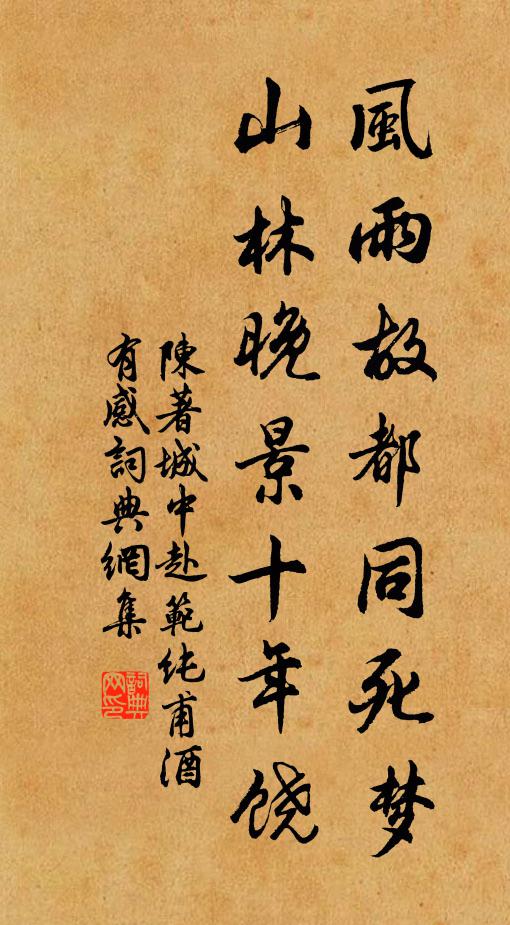 風雨故都同死梦
山林晚景十年饶
陳著城中赴範纯甫酒
有感詞典網集
詞典网印